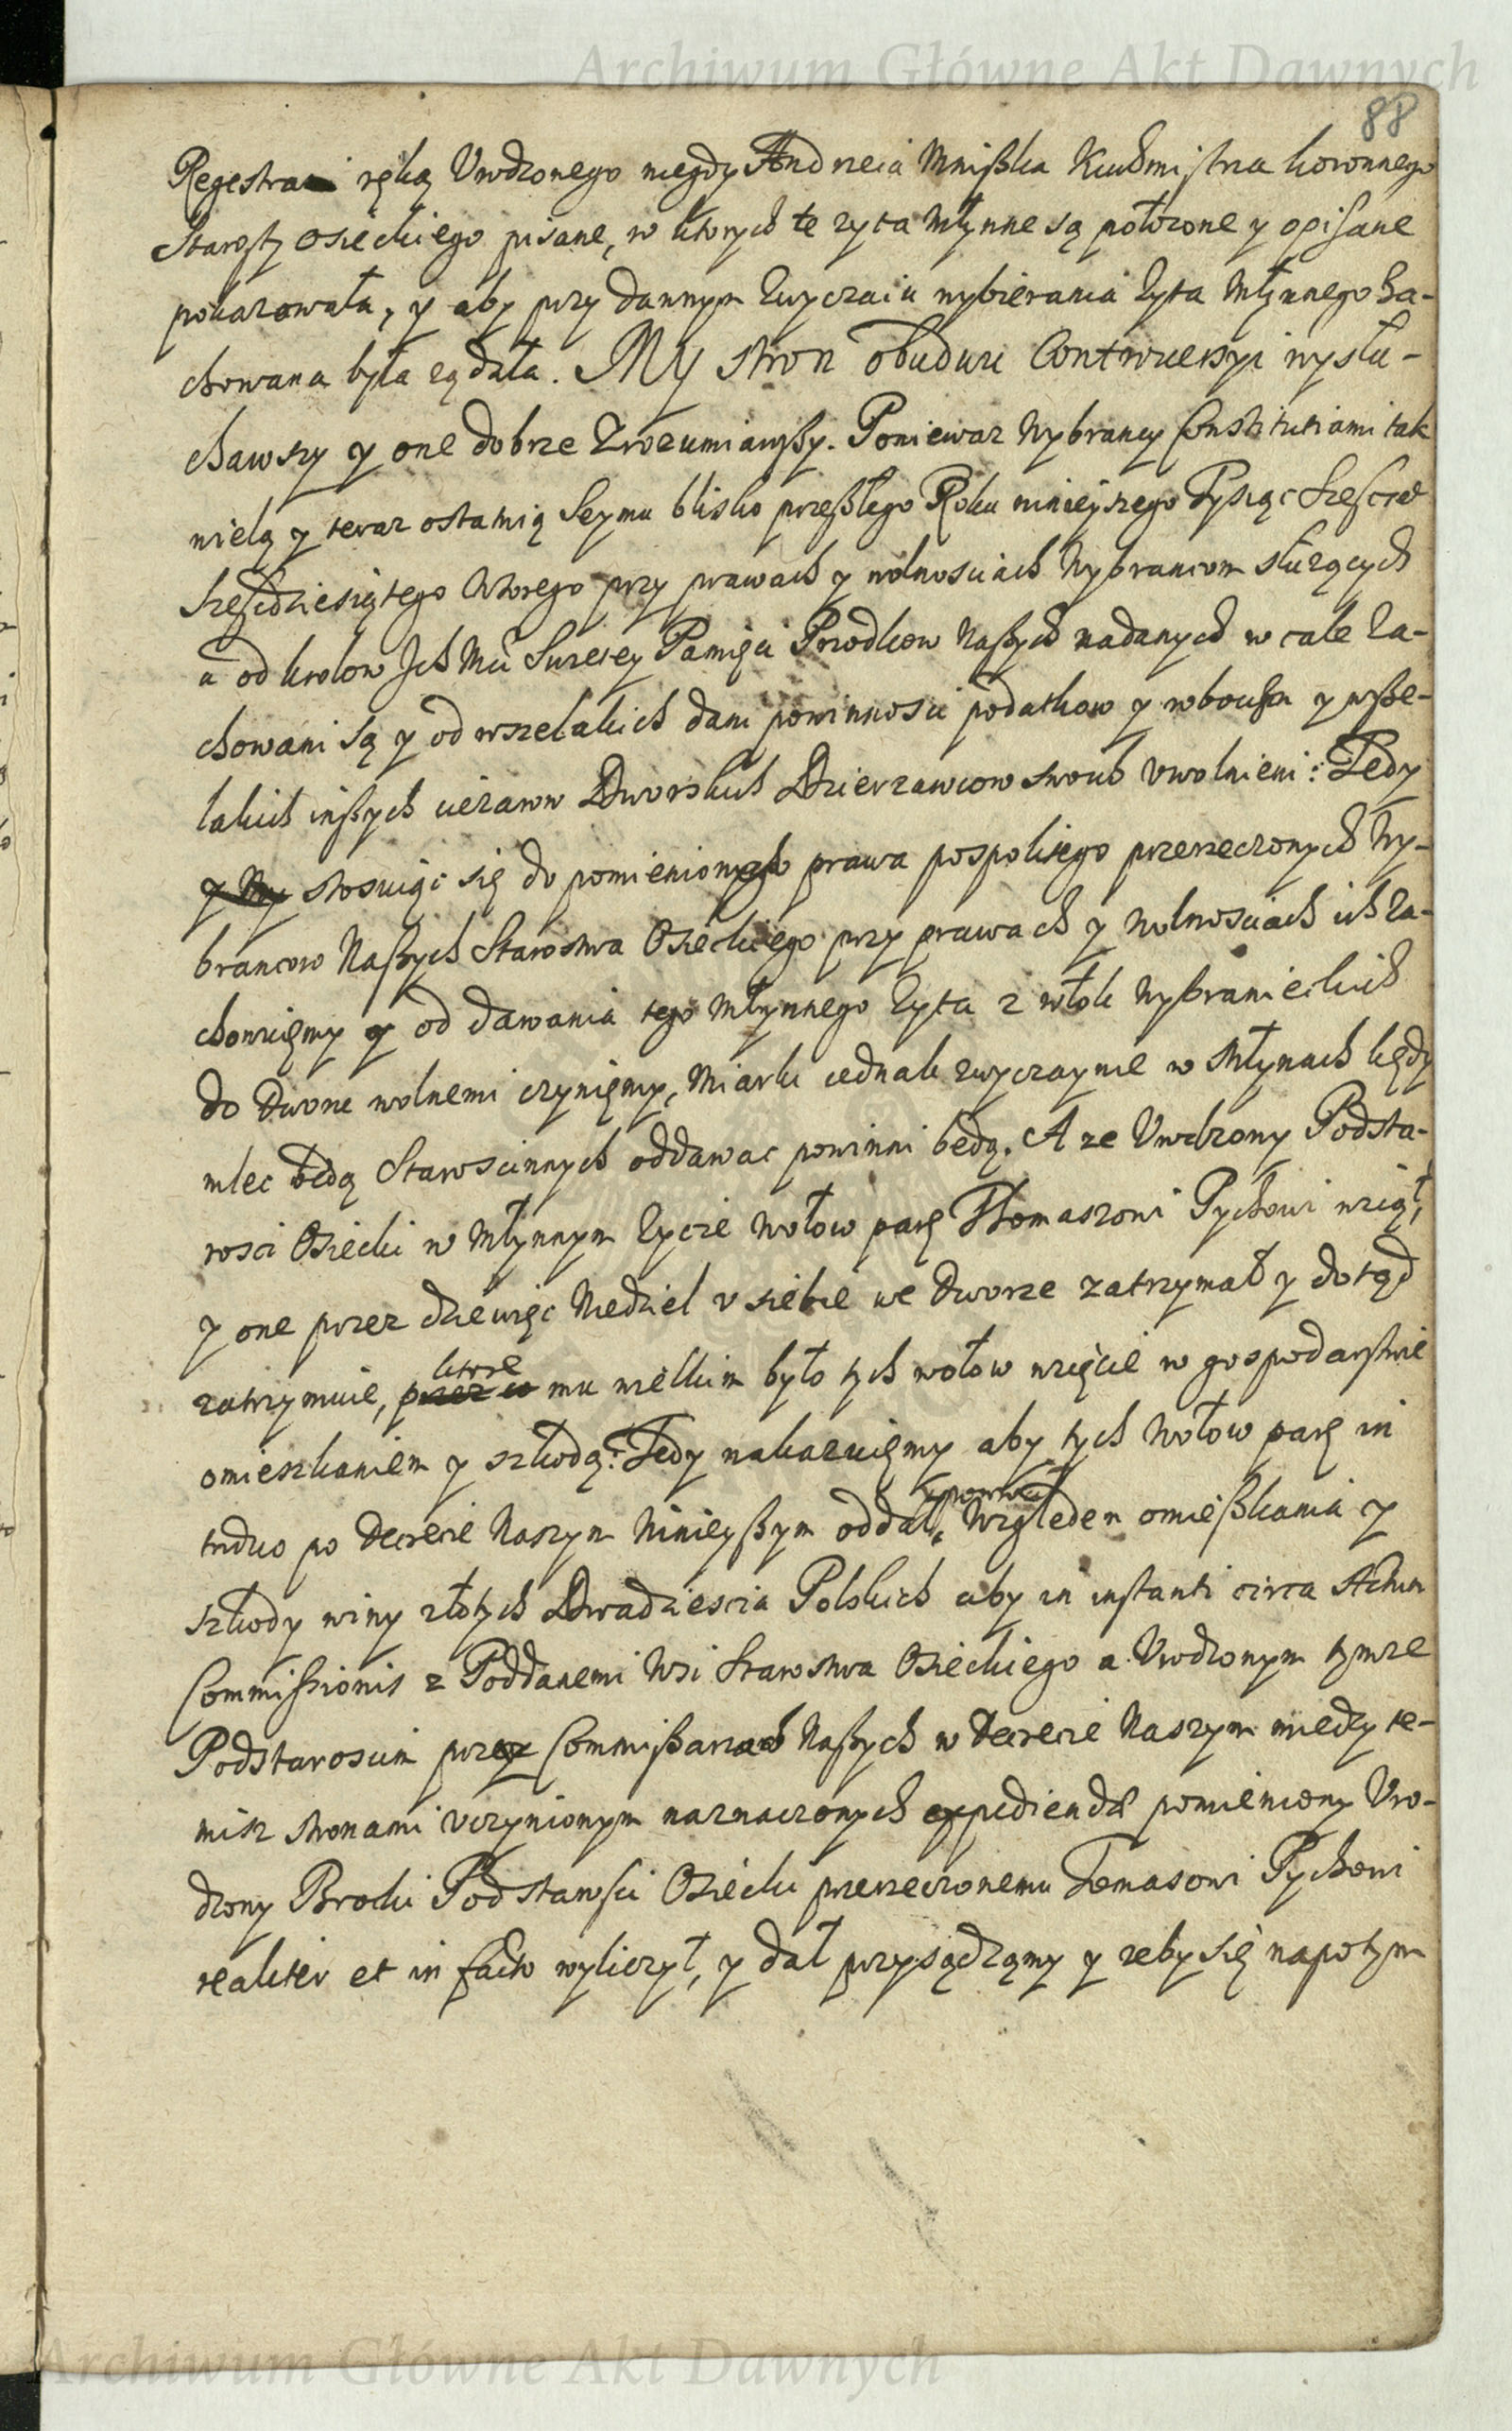 Archiwum Główne Akt Dawnych
88
Regestra ręką Vrodzonego niegdy Andrzeia Mnißka Kuchmistrza koronnego
Starosty Osieckiego pisane, w ktorych te zyta młynne są położone y opisane
pokazowała, y aby przy dawnym zwyczaiu wybierania zyta Młynnego za-
chowana była ządała. My stron obudwu Controuersyi wysłu-
chawszy y one dobrze zrozumiawßy. Poniewaz Wybrancy Constitutiami tak
wielą y teraz ostatnią Seymu blisko przeßłego Roku ninieyszego Tysiąc Szescset
szescdziesiątego wtorego przy prawach y wolnosciach Wybrancom służących
a od krolow Ich Mci Swietey Pamięci Przodkow Naßych nadanych w cale za-
chowani są y od wszelakich dani powinnosci podatkow y robocizn y wße-
lakich inßych ciezarow Dworskich Dzierzawcow swoich vwolnieni: Tedy
stosuiąc się do pomienionego prawa pospolitego przerzeczonych Wy-
brancow Naßych Starostwa Osieckiego przy prawach y wolnosciach ich za-
chowuięmy y od dawania tego Młynnego zyta z włok Wybranieckich
do Dworu wolnemi czynięmy, Miarki iednak zwyczayne w Młynach kędy
mlec będą Staroscinnych oddawac powinni będą. A ze Vrodzony Podsta-
rosci Osiecki w Młynnym zycie wołow parę Thomaszowi Pychowi wziął,
y one przez dziewięc Niedziel v siebie we Dworze zatrzymał y dotąd
zatrzymuie, ktore mu wielkim było tych wołow wzięcie w gospodarstwie
omieszkaniem y szkodą: Tedy nakazuięmy aby tych wołow parę in
triduo po Decrecie Naszym Ninieyßym oddał, y powrocił Względem omießkania y
szkody winy złotych Dwadziescia Polskich aby in instanti circa Actum
Commißionis z Poddanemi Wsi Starostwa Osieckiego a Vrodzonym tymze
Podstaroscim przez Commißarzach Naßych w Decrecie Naszym miedzy te-
misz stronami vczynionym naznaczonych expediendae pomieniony Vro-
dzony Brocki Podstarosci Osiecki przerzeczonemu Tomasowi Pychowi
realiter et in facto wyliczył, y dał przysądzamy y zeby się napotym
Archiwum Główne Akt Dawnych